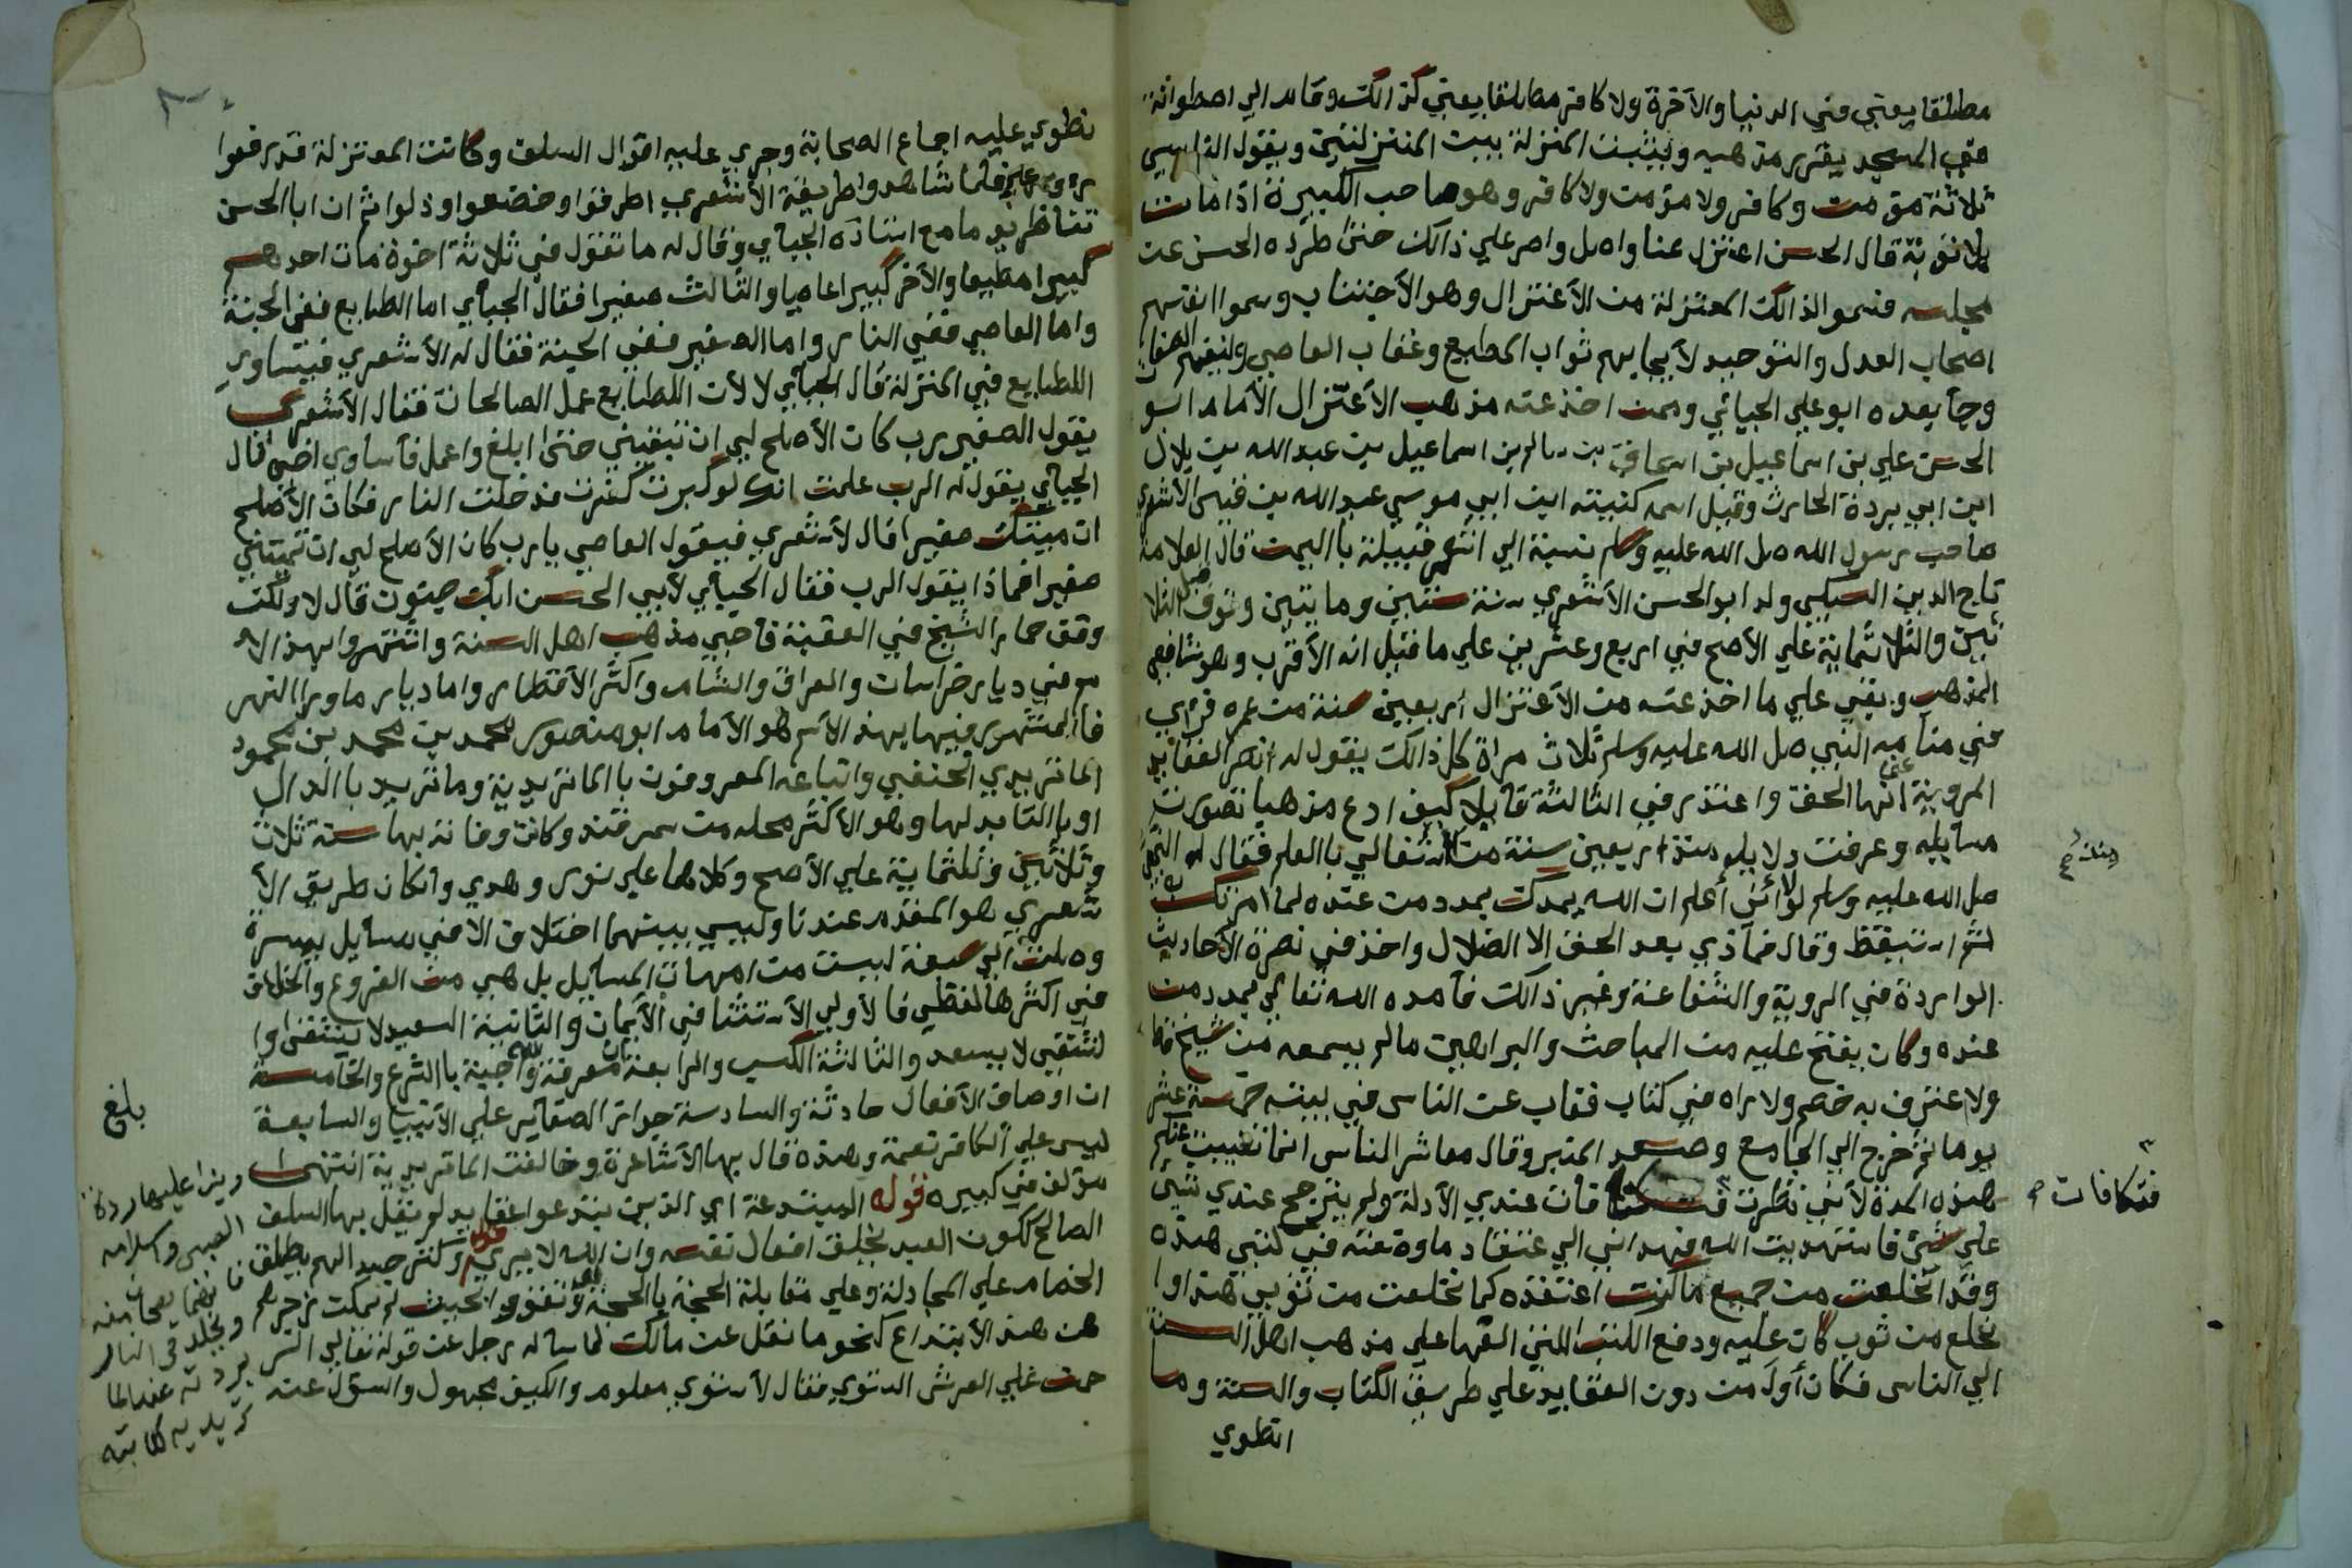 مطلقا يعني في الدنيا والآخرة ولا كافر مطلقا يعني كذالك وقام الي اصطوانة
في المسجد يقرر مذهبه ويثبت المنزلة بيت المنزلتين ويقول الناس
ثلاثة مؤمن وكافر ولا مؤمن ولا كافر وهو صاحب الكبيرة اذا مات
بلا توبة قال الحسن اعتزل عنا واصل واصر علي ذالك حتى طرده الحسن عن
مجلسه فسموا لذالك المعتزلة من الأعتزال وهو الأجتناب وسموا انفسهم
اصحاب العدل والتوحيد لأيجابهم ثواب المطيع وعقاب العاصي ولنفيهم الصفات
وجأ بعده ابو علي الجبائي وممن اخذ عنه مذهب الأعتزال الأمام ابو
الحسن علي بن اسماعيل بن اسحاق بن سالم بن اسماعيل بن عبد الله بن بلال
ابن ابي بردة الحارث وقيل اسمه كنيته ابن ابي موسي عبد الله بن قيس الأشعري
صاحب رسول الله صل الله عليه وسلم نسبة الي اشعر قبيلة باليمن قال العلامة
تاج الدين السبكي ولد ابو الحسن الأشعري سنة ستين ومايتين وتوف قبل الثلا
ثين والثلاثماية علي الأصح في اربع وعشرين علي ما قيل انه الأقرب وهو شافعي
المذهب وبقي علي ما اخذ عنه من الأعتزال أربعين سنة من عمره فرأي
في منامه النبي صل الله عليه وسلم ثلاث مراة كل ذالك يقول له انصر العقايد
المروية عني انها الحق واعتذر في الثالثة قايلا كيف ادع مذهبا تصورت
مسايله وعرفت دلايله منذ اربعين سنة من اشتغالي بالعلم فقال له النبي
صل الله عليه وسلم لولا أنني أعلم ان الله يمدك بمدد من عنده لما امرتك
ثم استيقظ وقال فماذي بعد الحق الا الضلال واخذ في نصرة الأحاديث
الواردة في الروية والشفاعة وغير ذالك فأمده الله تعالي بمدد من
عنده وكان يفتح عليه من المباحث والبراهين مالم يسمعه من شيخ قط
ولا اعترف به خصم ولا راه في كتاب فغاب عن الناس في بيته خمسة عشر
يوما ثم خرج الي الجامع وصعد المنبر وقال معاشر الناس انما تغيبت عنكم
هذه المدة لأني نظرت فتكافات عندي الأدلة ولم يترجح عندي شئ
علي شئ فاستهديت الله فهداني الي اعتقاد ما اودعته في كتبي هذه
وقد انخلعت من جميع ما كنت اعتقده كما انخلعت من ثوبي هذا وا
نخلع من ثوب كان عليه ودفع الكتب التي الفها علي مذهب اهل السنة
الي الناس فكان أول من دون العقايد علي طريق الكتاب والسنة وما
انطوي
فتكافات
نطوي عليه اجماع الصحابة وجري عليه اقوال السلف وكانت المعتزلة قد رفعوا
رءوسهم فلما شاهدوا طريقة الأشعري اطرفوا وخضعوا وذلوا ثم ان ابا الحسن
تناظر يوما مع استاذه الجباي وقال له ما تقول في ثلاثة اخوة مات احدهم
كبيرا مطيعا والأخر كبيرا عاصيا والثالث صغيرا فقال الجبأي اما الطايع ففي الجنة
واما العاصي ففي النار واما الصغير ففي الجنة فقال له الأشعري فيتساوي
الطايع في المنزلة قال الجبأي لا لأن الطايع عمل الصالحات فقال الأشعري
يقول الصغير يرب كان الأصلح لي ان تبقيني حتى ابلغ واعمل فأساوي اخي قال
الجبأي يقول له الرب علمت انك لو كبرت كفرت فدخلت النار فكان الأصلح
ان ميتك صغيرا قال لأشعري فيقول العاصي يارب كان الأصلح لي ان تميتني
صغيرا فماذا يقول الرب فقال الجبأي لأبي الحسن ابك جنون قال لا ولكن
وقف حمار الشيخ في العقبة فأحيي مذهب اهل السنة واشتهروا بهذ الا
سم في ديار خراسان والعراق والشام واكثر الأقطار واما ديار ماورا النهر
فالمشتهر فيها بهذ الأسم هو الأمام ابو منصور محمد بن محمد بن محمود
الماتريدي الحنفي واتباعه المعروفون بالماتريدية وماتريد بالدال
او بالتا بدلها وهو الأكثر محله من سمرقند وكانت وفاته بها سنة ثلاث
وثلاثين وثلثماية علي الأصح وكلاهما علي نور وهدي وانكان طريق الأ
شعري هو المقدم عندنا وليس بينهما اختلاف الا في مسايل يسيرة
وصلت الي بضعة ليست من امهات المسايل بل هي من الفروع والخلاف
في اكثرها لفظي فالأولي الأستثنا في الأيمان والثانية السعيد لا يشقى وا
لشقي لا يسعد والثالثة الكسب والرابعة معرفة الله واجبة بالشرع والخامسة
ان اوصاف الأفعال حادثة والسادسة جواز الصغاير علي الأنبيا والسابعة
ليس علي الكافر نعمة وهذه قال بها الأشاعرة وخالفت الماتريدية انتهى
مؤلف في كبيره قوله المبتدعة اي الذين ابتدعوا عقايد لم يقل بها السلف
الصالح ككون العبد يخلق افعال نفسه وان الله لا يري
الخصام علي المجادلة وعلي مقابلة الحجة بالحجة
عن هذ الأبتداع كنحو ما نقل عن مالك لما سأله رجل عن قوله تعالي الر
حمن علي العرش استوي فقال لأستوي معلوم والكيف مجهول والسؤل عنه
بلغ